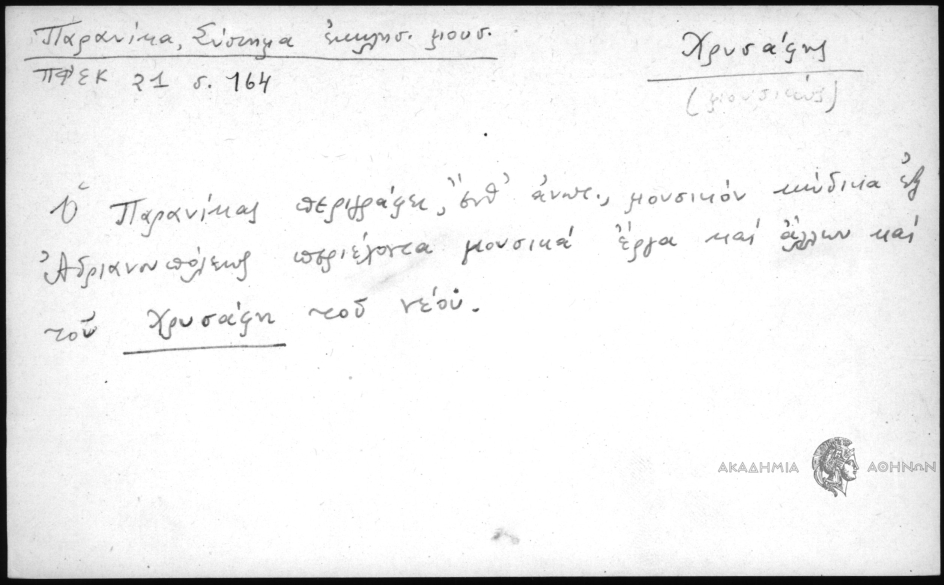 Παρανίκα, Σύστημα ἐκκλησ. μουσ.
ΠΦΕΚ 21 σ. 164
Χρυσάφης
(μουσικός)
Ὁ Παρανίκας περιγράφει, ἔνθ' ἀνωτ., μουσικόν κώδικα ἐξ
Ἀδριανουπόλεως περιέχοντα μουσικά ἔργα καί ἄλλων καί
τοῦ Χρυσάφη τοῦ νέου.
ΑΚΑΔΗΜΙΑ ΑΘΗΝΩΝ